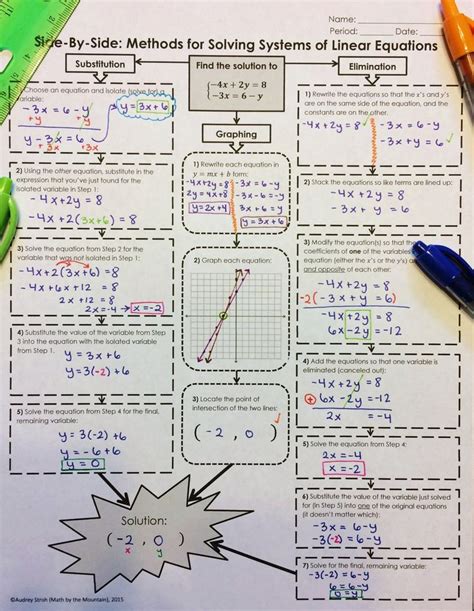 Name:
Period: Date:
Side-By-Side: Methods for Solving Systems of Linear Equations
Substitution
Find the solution to
-4x + 2y = 8
-3x = 6 - y
Elimination
Choose an equation and isolate
variable:
-3x = 6 - y
+y +y
y - 3x = 6
+3x +3x
y = 3x + 6
2) Using the other equation, substitute in the
expression that you've just found for the
isolated variable in Step 1:
-4x + 2y = 8
-4x + 2(3x+6) = 8
3) Solve the equation from Step 2 for the
variable that was not isolated in Step 1:
-4x + 2(3x+6) = 8
-4x + 6x + 12 = 8
2x + 12 = 8
2x = -4 → x = -2
4) Substitute the value of the variable from Step
3 into the equation with the isolated variable
from Step 1.
y = 3x + 6
y = 3(-2) + 6
5) Solve the equation from Step 4 for the final,
remaining variable:
y = 3(-2) + 6
y = -6 + 6
y = 0
Graphing
1) Rewrite each equation in
y = mx + b form:
-4x + 2y = 8
2y = 4x + 8
y = 2x + 4
-3x = 6 - y
-3x - 6 = -y
3x + 6 = y
y = 3x + 6
2) Graph each equation:
3) Locate the point of
intersection of the two lines:
( -2 , 0 )
1) Rewrite the equations so that the x's and y's
are on the same side of the equation, and the
constants are on the other.
-4x + 2y = 8
-3x = 6 - y
-3x + y = 6
2) Stack the equations so like terms are lined up:
-4x + 2y = 8
-3x + y = 6
3) Modify the equation(s) so that the
coefficients of one of the variables
equation (either the x's or the y's) are
and opposite of each other:
-4x + 2y = 8
-2(-3x + y = 6)
-4x + 2y = 8
6x - 2y = -12
4) Add the equations so that one variable is
eliminated (canceled out):
-4x + 2y = 8
+ 6x - 2y = -12
2x = -4
5) Solve the equation from Step 4:
2x = -4
x = -2
6) Substitute the value of the variable just solved
for (in Step 5) into one of the original equations
(it doesn't matter which):
-3x = 6 - y
-3(-2) = 6 - y
7) Solve for the final, remaining variable:
-3(-2) = 6 - y
6 = 6 - y
0 = -y
y = 0
Solution:
( -2 , 0 )
x y
©Audrey Strish (Math by the Mountain), 2015